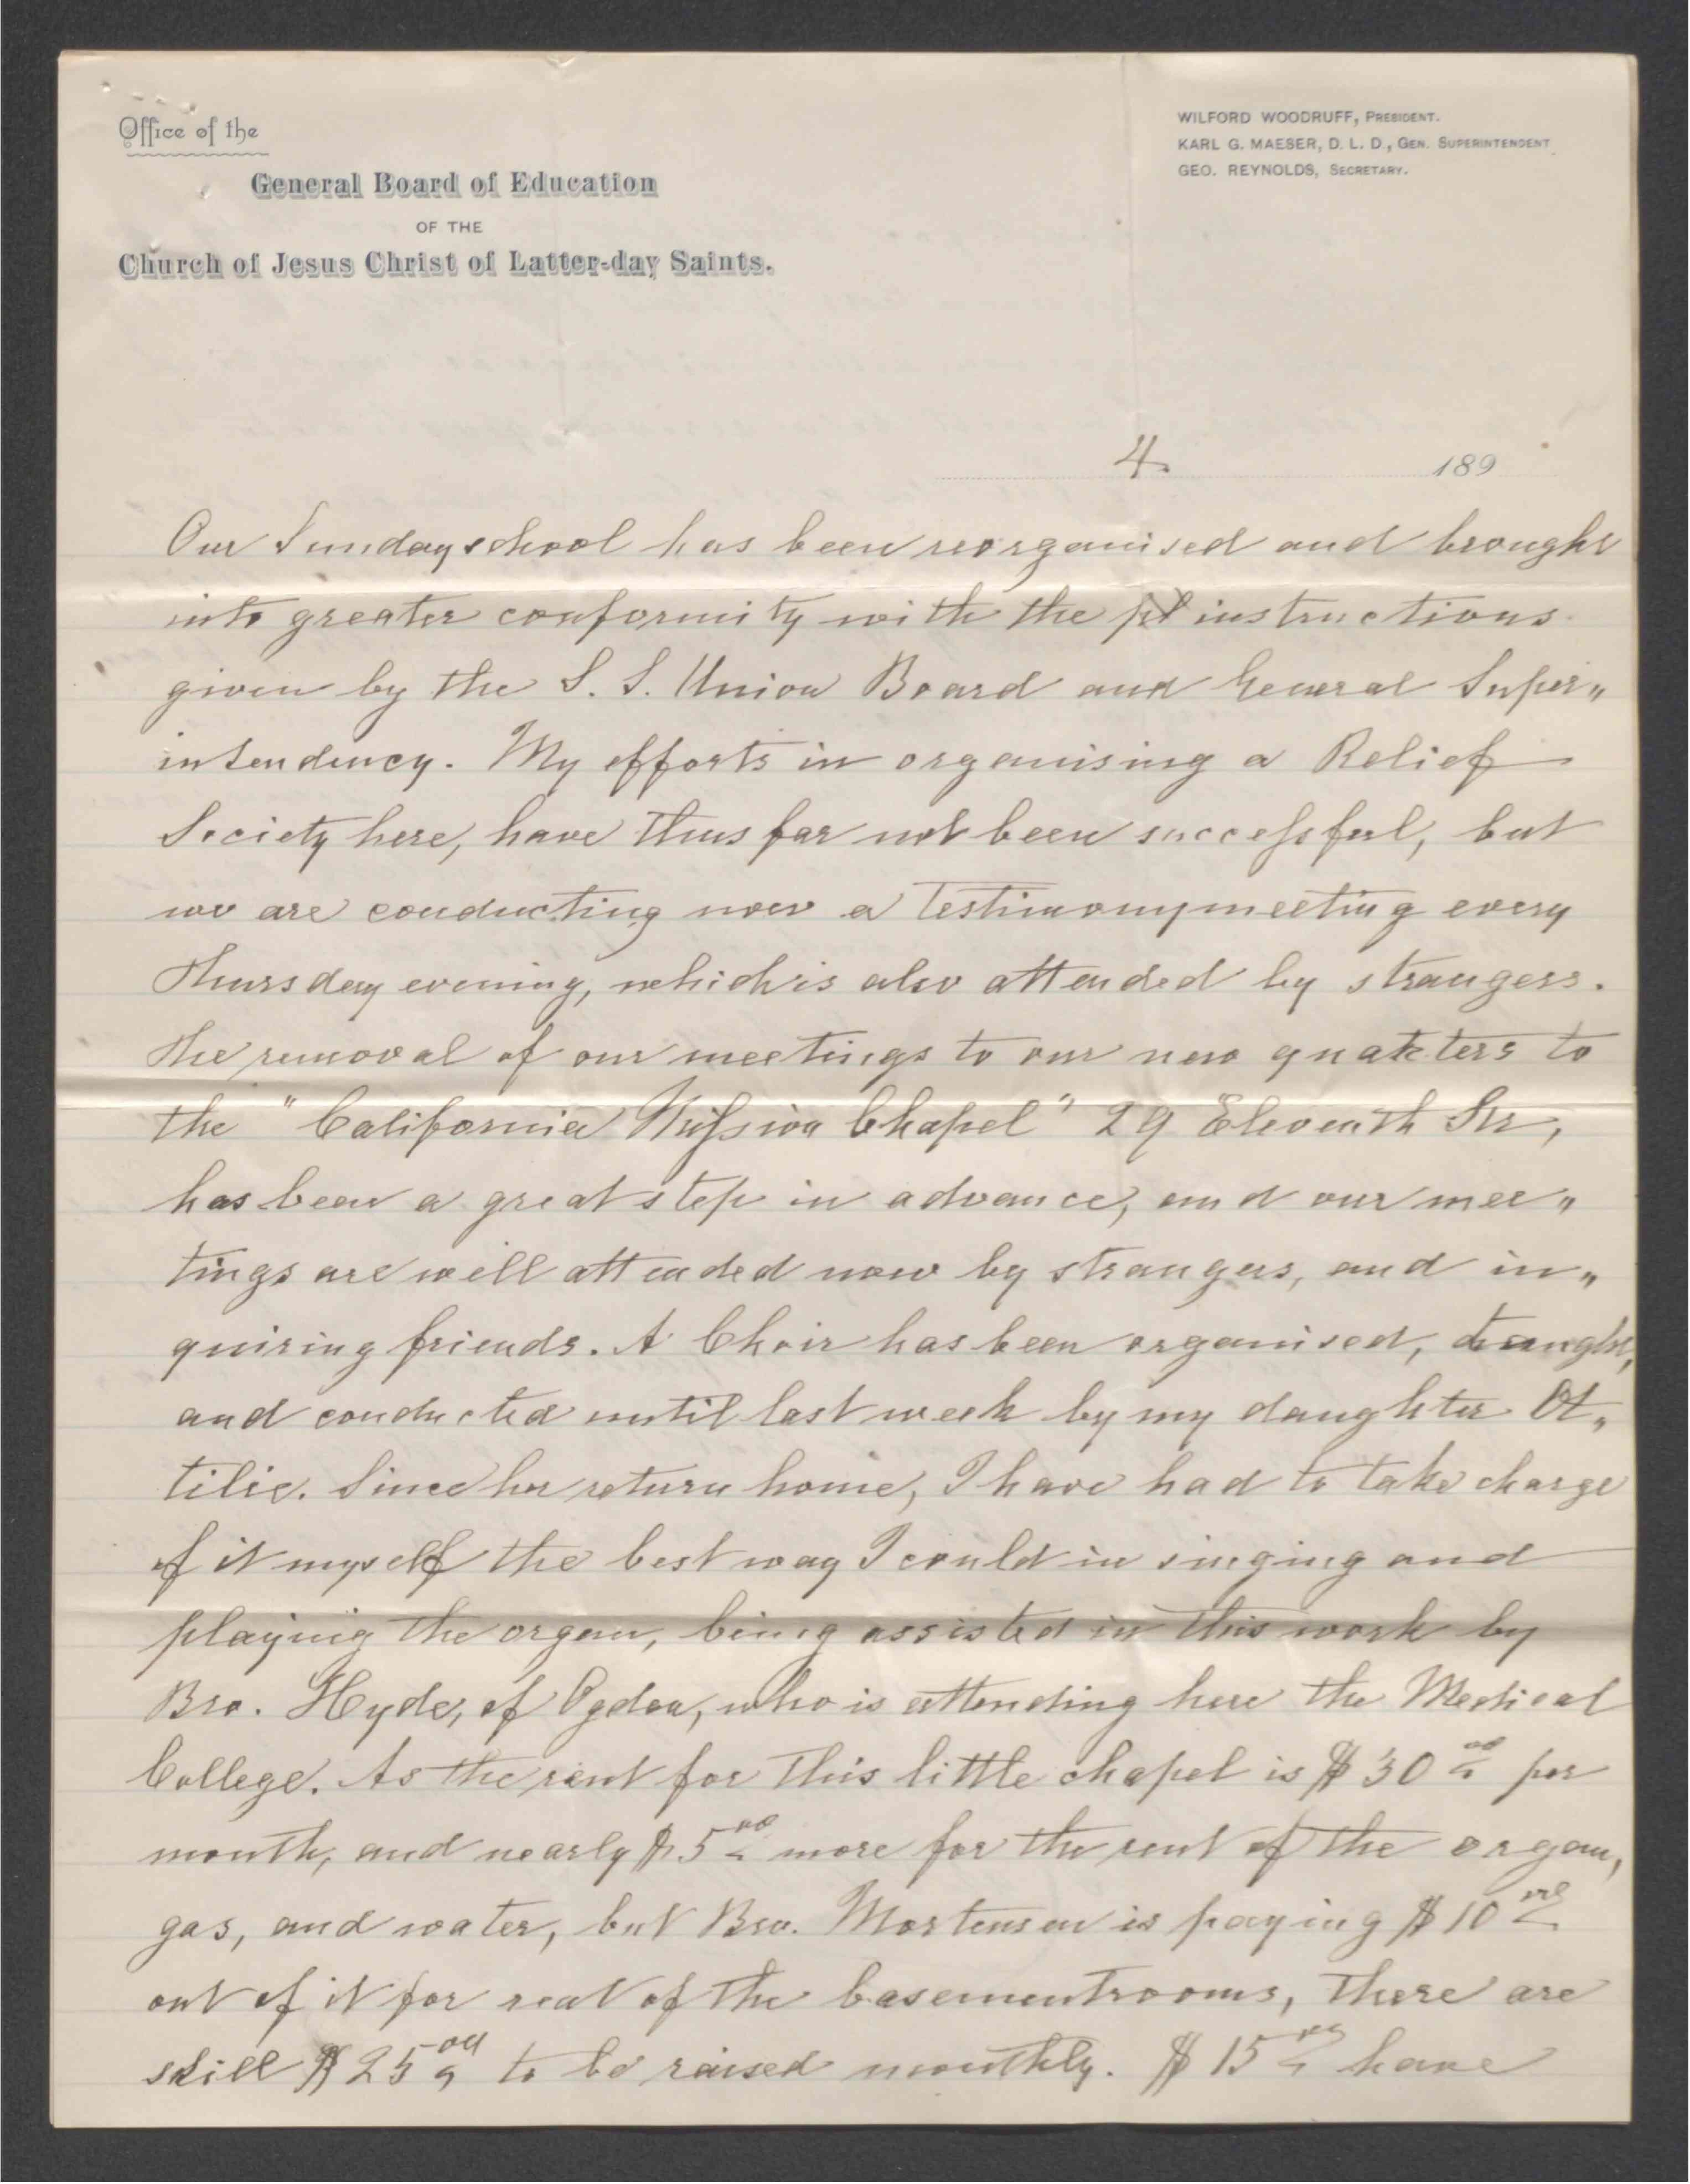 Office of the
General Board of Education
OF THE
Church of Jesus Christ of Latter-day Saints.
WILFORD WOODRUFF, PRESIDENT.
KARL G. MAESER, D. L. D., GEN. SUPERINTENDENT
GEO. REYNOLDS, SECRETARY.
4. 189
Our Sundayschool has been reorganised and brought
into greater conformity with the instructions
given by the S. S. Union Board and General Super„
intendency. My efforts in organising a Relief
Society here, have thus far not been successful, but
we are conducting now a Testimonymeeting every
Thursday evening, which is also attended by strangers.
The removal of our meetings to our new quarters to
the "California Mission Chapel" 29 Eleventh Str,
has been a great step in advance, and our mee„
tings are well attended now by strangers, and in„
quiring friends. A Choir has been organised, taught,
and conducted until last week by my daughter Ot„
tilie. Since her return home, I have had to take charge
of it myself the best way I could in singing and
playing the organ, being assisted in this work by
Bro. Hyde, of Ogden, who is attending here the Medical
College. As the rent for this little chapel is $30 00 per
month, and nearly $5 00 more for the rent of the organ,
gas, and water, but Bro. Mortensen is paying $10 00
out of it for rent of the basementrooms, there are
still $25 00 to be raised monthly. $15 00 have